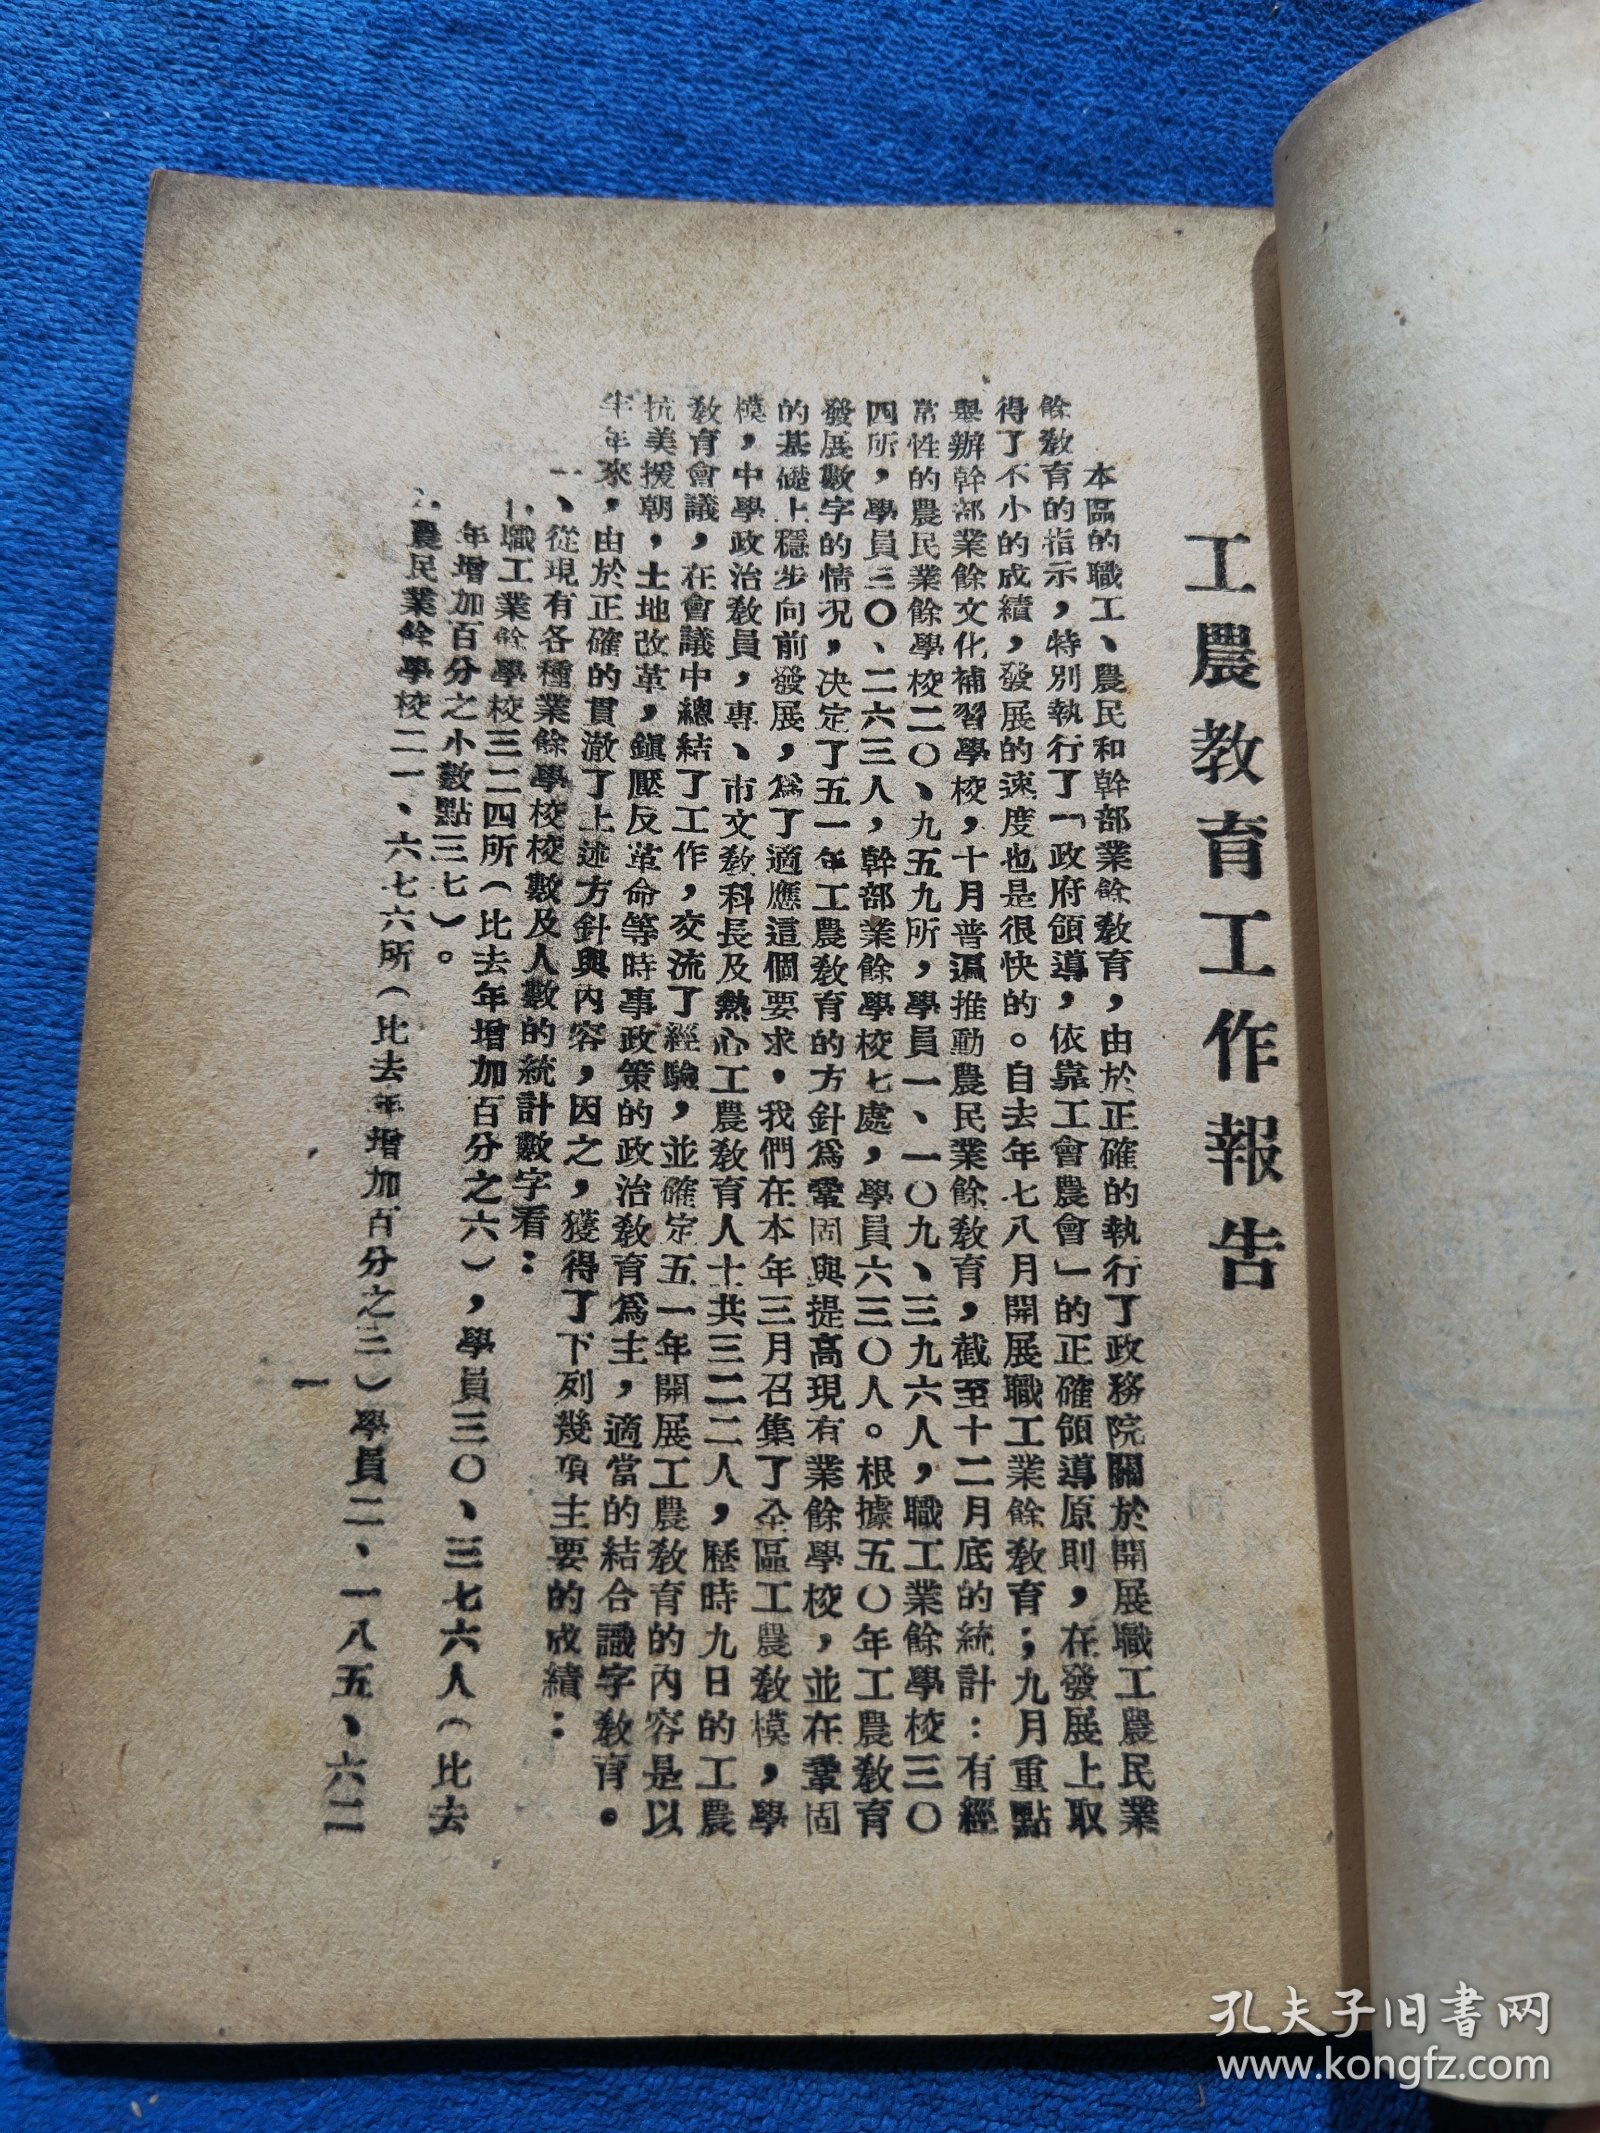 工農教育工作報告
本區的職工、農民和幹部業餘教育，由於正確的執行了政務院關於開展職工農民業
餘教育的指示，特別執行了「政府領導，依靠工會農會」的正確領導原則，在發展上取
得了不小的成績，發展的速度也是很快的。自去年七八月開展職工業餘教育；九月重點
舉辦幹部業餘文化補習學校，十月普遍推動農民業餘教育，截至十二月底的統計：有經
常性的農民業餘學校二〇、九五九所，學員一、一〇九、三九六人，職工業餘學校三〇
四所，學員三〇、二六三人，幹部業餘學校七處，學員六三〇人。根據五〇年工農教育
發展數字的情况，决定了五一年工農教育的方針爲鞏固與提高現有業餘學校，並在鞏固
的基礎上穩步向前發展，爲了適應這個要求，我們在本年三月召集了全區工農教模，學
模，中學政治教員，專、市文教科長及熱心工農教育人士共三二二人，歷時九日的工農
教育會議，在會議中總結了工作，交流了經驗，並確定五一年開展工農教育的內容是以
抗美援朝，土地改革，鎭壓反革命等時事政策的政治教育爲主，適當的結合識字教育。
半年來，由於正確的貫澈了上述方針與內容，因之，獲得了下列幾項主要的成績：
一、從現有各種業餘學校校數及人數的統計數字看：
1.職工業餘學校三二四所（比去年增加百分之六），學員三〇、三七六人（比去
年增加百分之小數點三七）。
2.農民業餘學校二一、六七六所（比去年增加百分之三）學員二、一八五、六二
一
孔夫子旧书网
www.kongfz.com